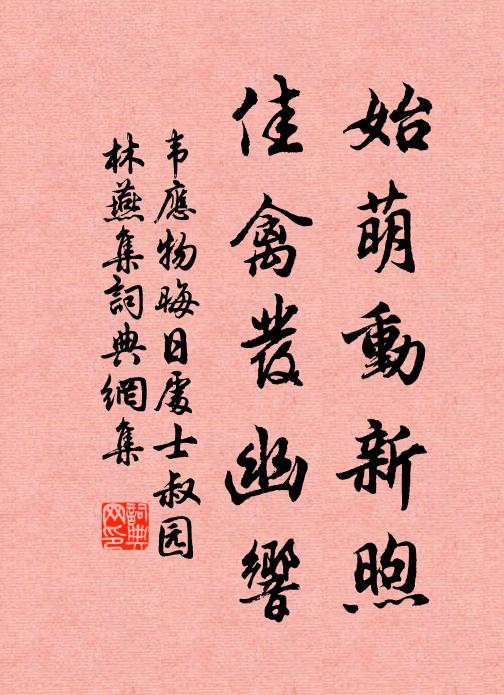 始萌動新煦
佳禽發幽響
韦應物晦日處士叔园
林燕集詞典網集
詞典
网印